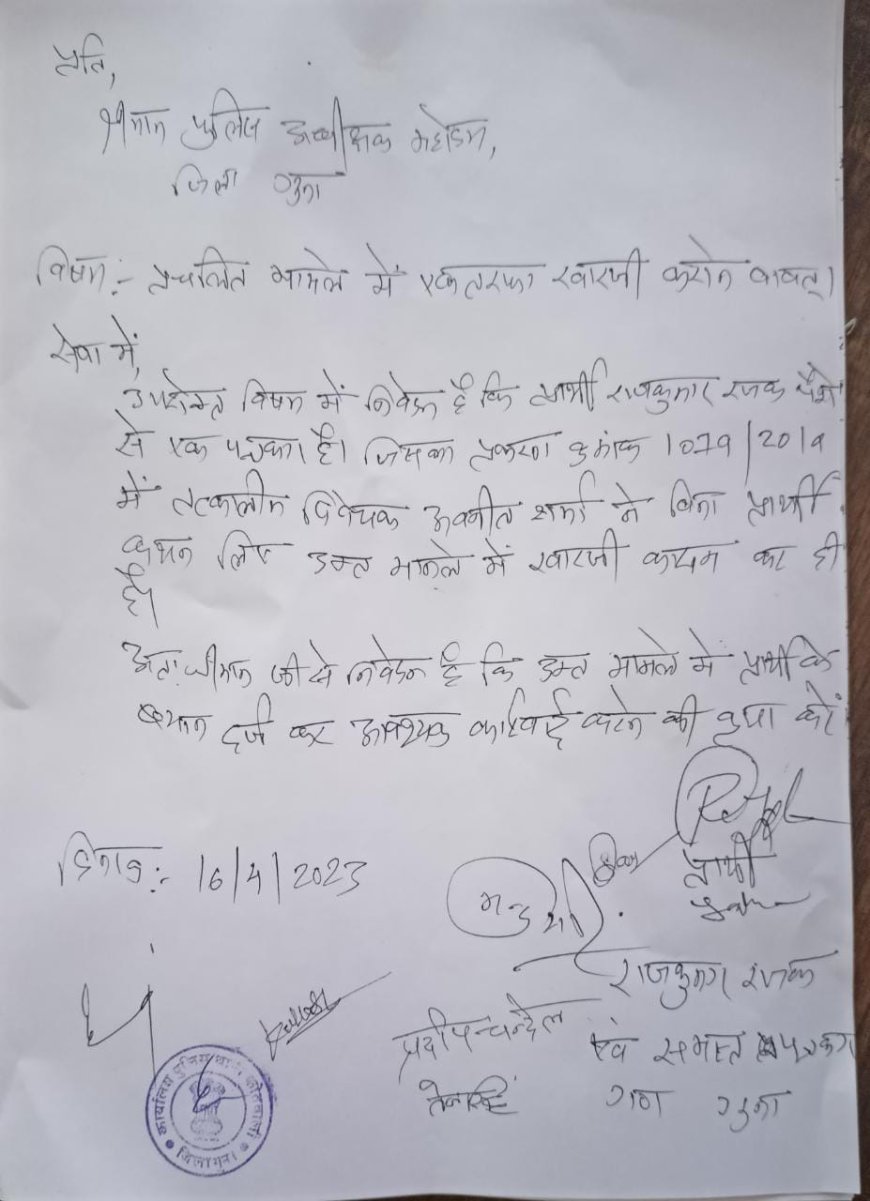 प्रति,
श्रीमान पुलिस अधीक्षक महोदय,
जिला गुना
विषय:- प्रचलित मामले में एकतरफा खारजी करने बाबत्।
सेवा में,
उपरोक्त विषय में निवेदन है कि प्रार्थी राजकुमार रजक पेशे
से एक पत्रकार है। जिसका प्रकरण क्रमांक 1079/2019
में तत्कालीन विवेचक अवनीत शर्मा ने बिना प्रार्थी
कथन लिए उक्त मामले में खारजी कायम कर दी
है।
अतः श्रीमान जी से निवेदन है कि उक्त मामले में प्रार्थी के
बयान दर्ज कर आवश्यक कार्रवाई करने की कृपा करें।
दिनांक:- 16/4/2023
प्रार्थी
राजकुमार रजक
प्रदीप चन्देल एवं समस्त पत्रकार
गण गुना
कार्यालय पुलिस थाना कोतवाली
जिला गुना